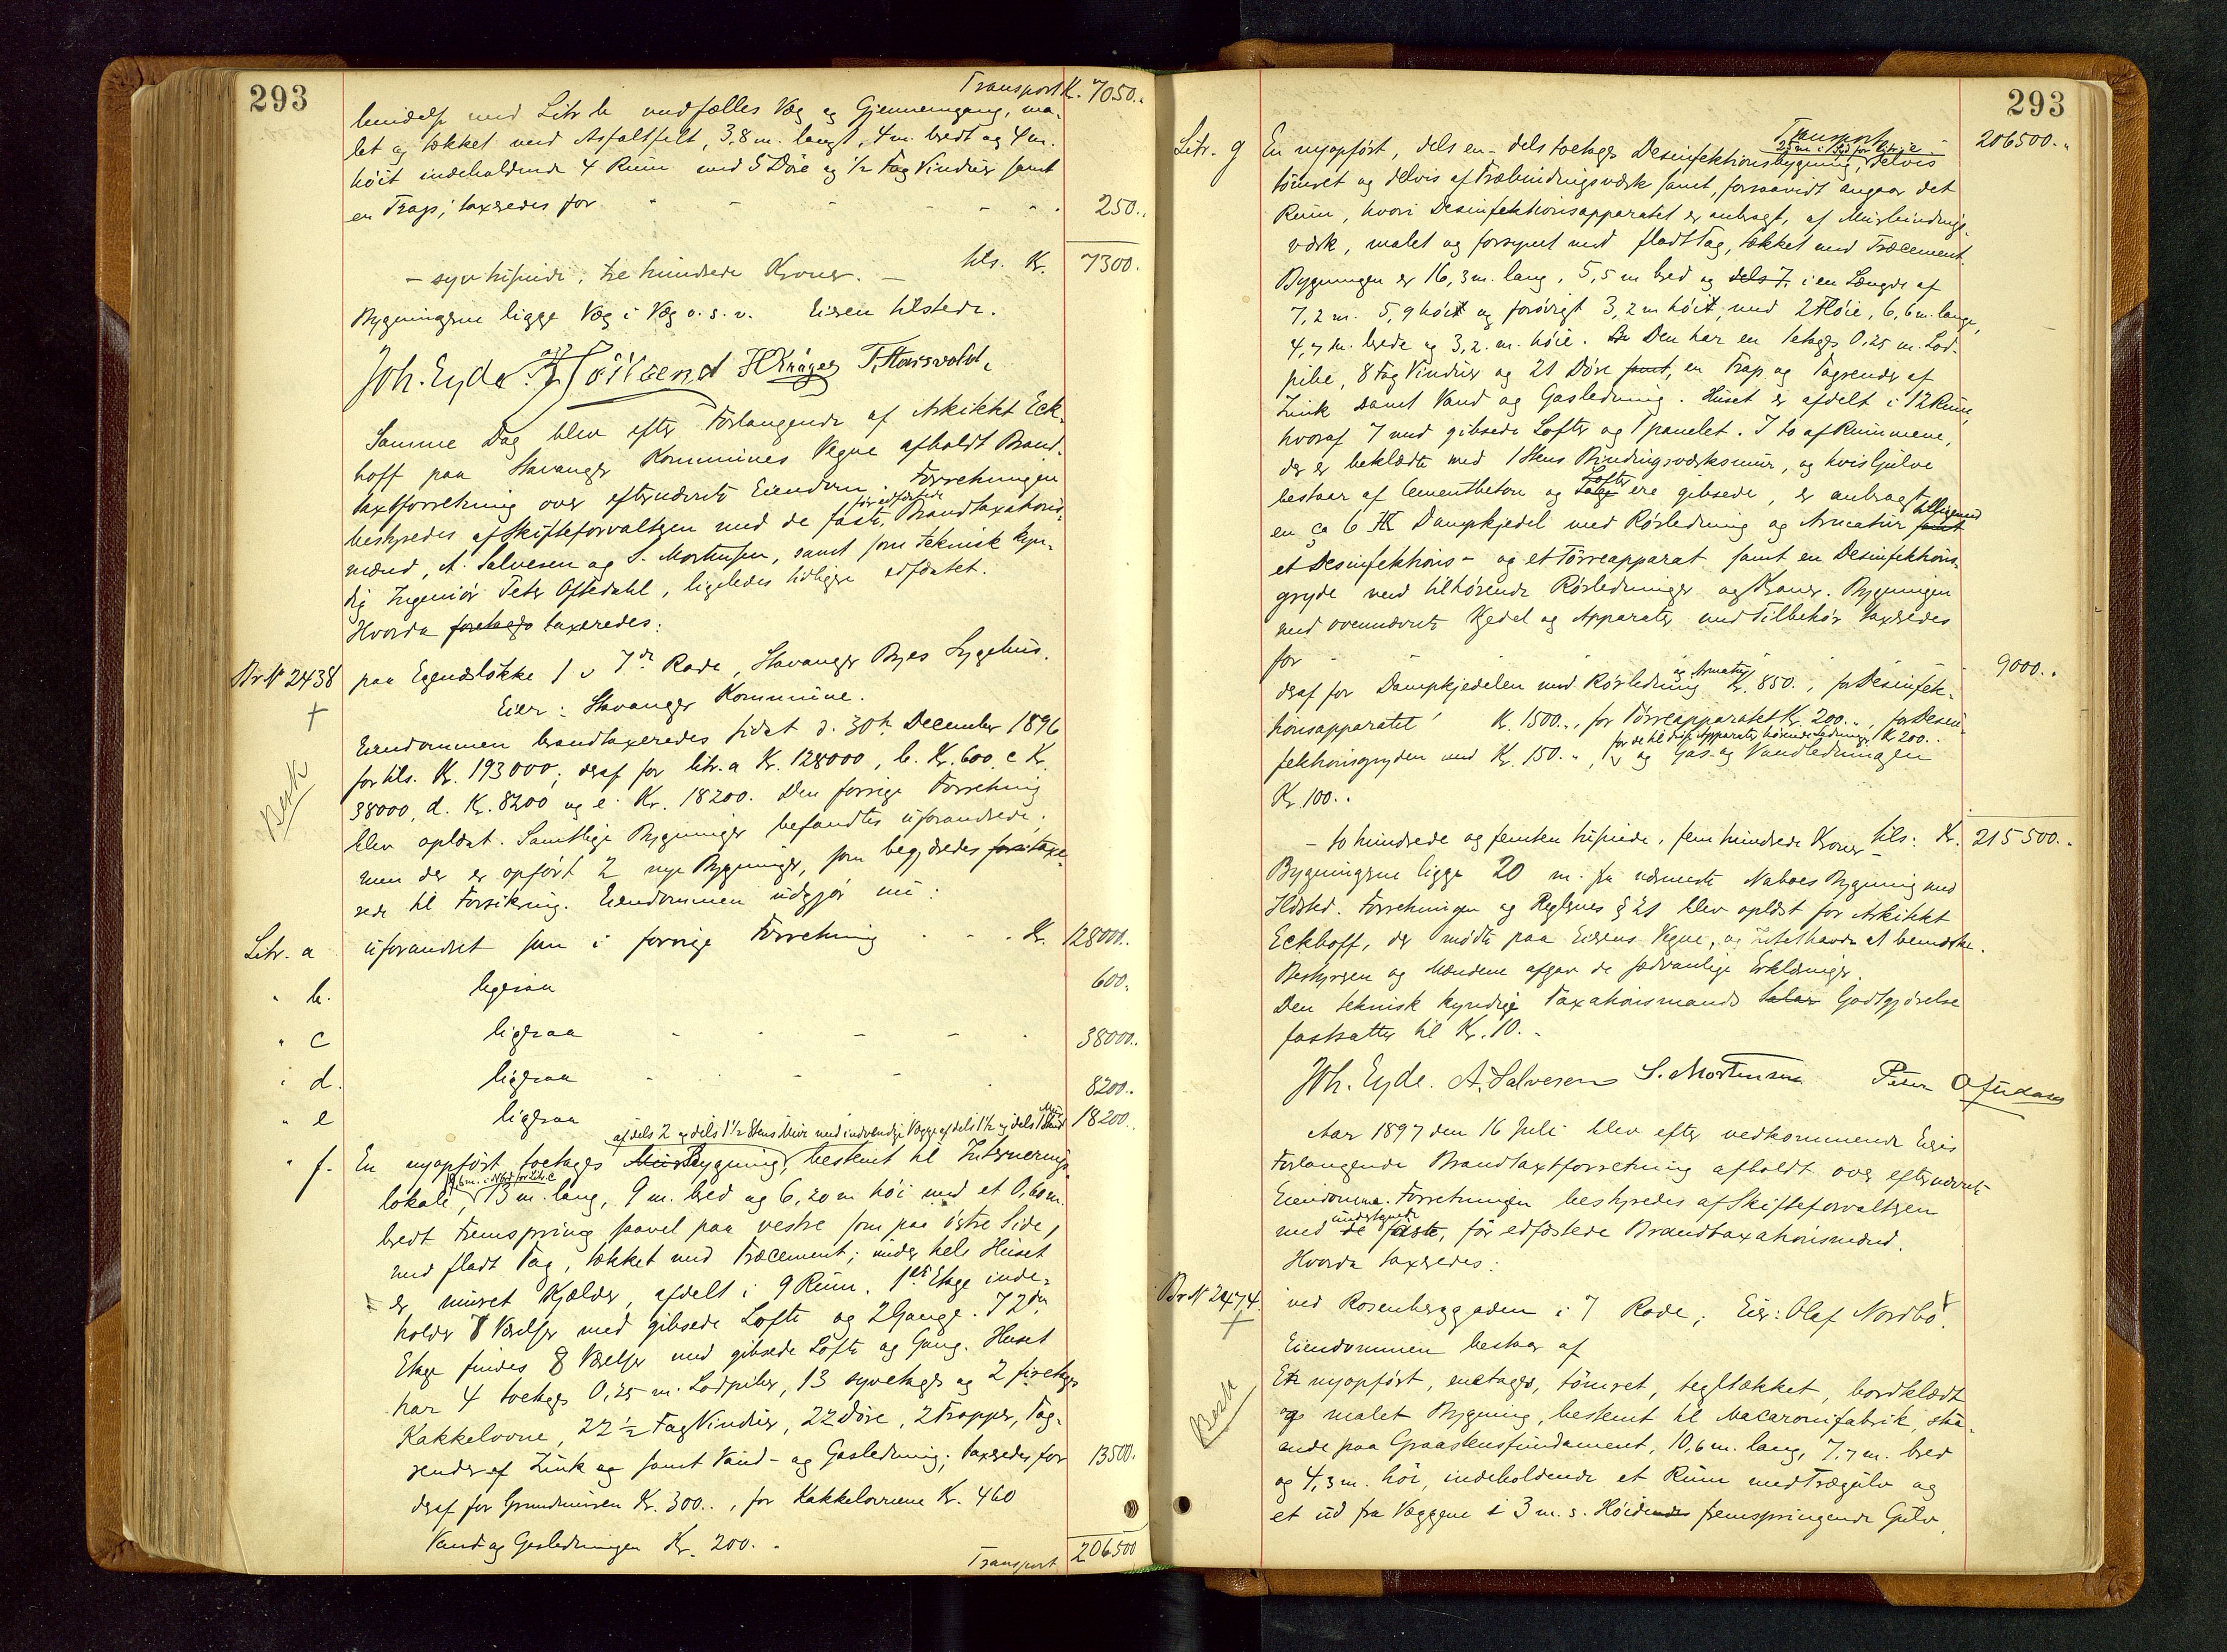 293
Transport K. 7050.
bindelse med Litr. b med fælles Væg og Gjennemgang, ma-
let og tækket med Asfaltfilt, 3,8 m. langt, 4 m. bredt og 4 m.
høit indeholdende 4 Rum med 5 Døre og 1/2 Fag Vinduer samt
en Trap; taxeredes for - - - - 250.
- syv tusinde, tre hundrede Kroner. - tils. Kr. 7300.
Bygningerne ligge Væg i Væg o. s. v. Eieren tilstede.
Joh. Eyde. H. Krüger T. Thorsvold.
Samme Dag blev efter Forlangende af Arkitekt Eck-
hoff paa Stavanger Kommunes Vegne afholdt Brand-
taxtforretning over efternævnte Eiendom. Forretningen
bestyredes af Skifteforvalteren med de faste, før edfæstede Brandtaxations-
mænd, A. Salvesen og S. Mortensen, samt som teknisk kyn-
dig Ingeniør Peter Oftedahl, ligeledes tidligere edfæstet.
Hvorda foretoges taxeredes:
Br. N. 2438 paa Egenæsløkke 1 i 7de Rode, Stavanger Byes Sygehus.
Eier: Stavanger Kommune.
Eiendommen brandtaxeredes sidst d. 30te December 1896
for tils. Kr. 193000; deraf for litr. a Kr. 128000, b. Kr. 600, c Kr.
38000, d. Kr. 8200 og e. Kr. 18200. Den forrige Forretning
blev oplæst. Samtlige Bygninger befandtes uforandrede;
men der er opført 2 nye Bygninger, som begjæredes taxe-
rede til Forsikring. Eiendommen udgjør nu:
Besk
Litr. a uforandret som i forrige Forretning - - - Kr. 128000.
" b. ligesaa 600.
" c ligesaa - - - - 38000.
" d. ligesaa - - - 8200.
" e ligesaa 18200.
af dels 2 og dels 1 1/2 Stens Mur med indvendige Vægge af dels 1 1/2 og dels 1 Stens Mur
" f. En nyopført toetages Murbygning, bestemt til Internerings-
lokale, 13 m. lang, 9 m. bred og 6,20 m høi med et 0,60 m.
bredt Fremspring saavel paa vestre som paa østre Side,
med fladt Tag, tækket med Træcement; under hele Huset
er muret Kjælder, afdelt i 9 Rum. 1ste Etage inde-
holder 8 Værelser med gibsede Lofte og 2 Gange. I 2den
Etage findes 8 Værelser med gibsede Lofte og Gang. Huset
har 4 toetages 0,25 m. Lodpiber, 13 syvetages og 2 firetages
Kakkelovne, 22 1/2 Fag Vinduer, 22 Døre, 2 Trapper, Tag-
render af Zink og samt Vand- og Gasledning; taxeredes for 13500.
deraf for Grundmuren Kr. 300.., for Kakkelovnene Kr. 460
Vand og Gasledningen Kr. 200..
Transport 206500
293
Transport 206500..
Litr. g En nyopført, dels en- dels toetages Desinfektionsbygning, delvis
tømret og delvis af Træbindingsværk samt, forsaavidt angaar det
Rum, hvori Desinfektionsapparatet er anbragt, af Murbindings-
værk, malet og forsynet med fladt Tag, tækket med Træcement.
Bygningen er 16,3 m. lang, 5,5 m bred og dels 7, i en Længde af
7,2 m. 5,9 høit og forøvrigt 3,2 m høit, med 2 Fløie, 6,6 m. lange,
4,7 m. brede og 3,2 m. høie. Den har en 1etages 0,25 m. Lod-
pibe, 8 Fag Vinduer og 21 Døre samt, en Trap og Tagrender af
Zink samt Vand og Gasledning. Huset er afdelt i 12 Rum,
hvoraf 7 med gibsede Lofter og 1 panelet. I to af Rummene,
der er beklædte med 1 Stens Bindingsværksmur, og hvis Gulve
bestaar af Cementbeton og Lofter ere gibsede, er anbragt
en ca 6 HK Dampkjedel med Rørledning og Armatur samt tilligemed
et Desinfektions- og et Tørreapparat samt en Desinfektions-
gryde med tilhørende Rørledninger og Kraner. Bygningen
med ovennævnte Kjedel og Apparater med Tilbehør taxeredes
for - 9000..
deraf for Dampkjedelen med Rørledning og Armatur Kr. 850.., for Desinfek-
tionsapparatet Kr. 1500.., for Tørreapparatet Kr. 200.., for Desin-
fektionsgryden med Kr. 150.., for de til disse Apparater hørende Ledninger Kr. 200..
og Gas- og Vandledningen
Kr. 100..
- to hundrede og femten tusinde, fem hundrede Kroner - tils: Kr. 215500..
Bygningerne ligge 20 m. fra nærmeste Naboes Bygning med
Ildsted. Forretningen og Reglernes § 21 blev oplæst for Arkitekt
Eckhoff, der mødte paa Eierens Vegne, og Intet havde at bemærke.
Bestyreren og Mændene afgav de sædvanlige Erklæringer.
Den teknisk kyndige Taxationsmands Salær Godtgjørelse
fastsattes til Kr. 10..
Joh. Eyde. A. Salvesen S. Mortensen Peter Oftedahl
Aar 1897 den 16 Juli blev efter vedkommende Eiers
Forlangende Brandtaxtforretning afholdt over efternævnte
Eiendomme. Forretningen bestyredes af Skifteforvalteren
med de faste, undertegnede før edfæstede Brandtaxationsmænd.
Hvorda taxeredes:
Br. N. 2474. ved Rosenberggaden i 7 Rode; Eier: Olaf Nordbø.
Eiendommen bestaar af
Besk
En nyopført, enetages, tømret, tegltækket, bordklædt
og malet Bygning, bestemt til Macaronifabrik, staa-
ende paa Graastensfundament, 10,6 m. lang, 7,7 m. bred
og 4,3 m. høi, indeholdende et Rum med Trægulv og
et ud fra Væggene i 3 m.s. Høide fremspringende Gulv,